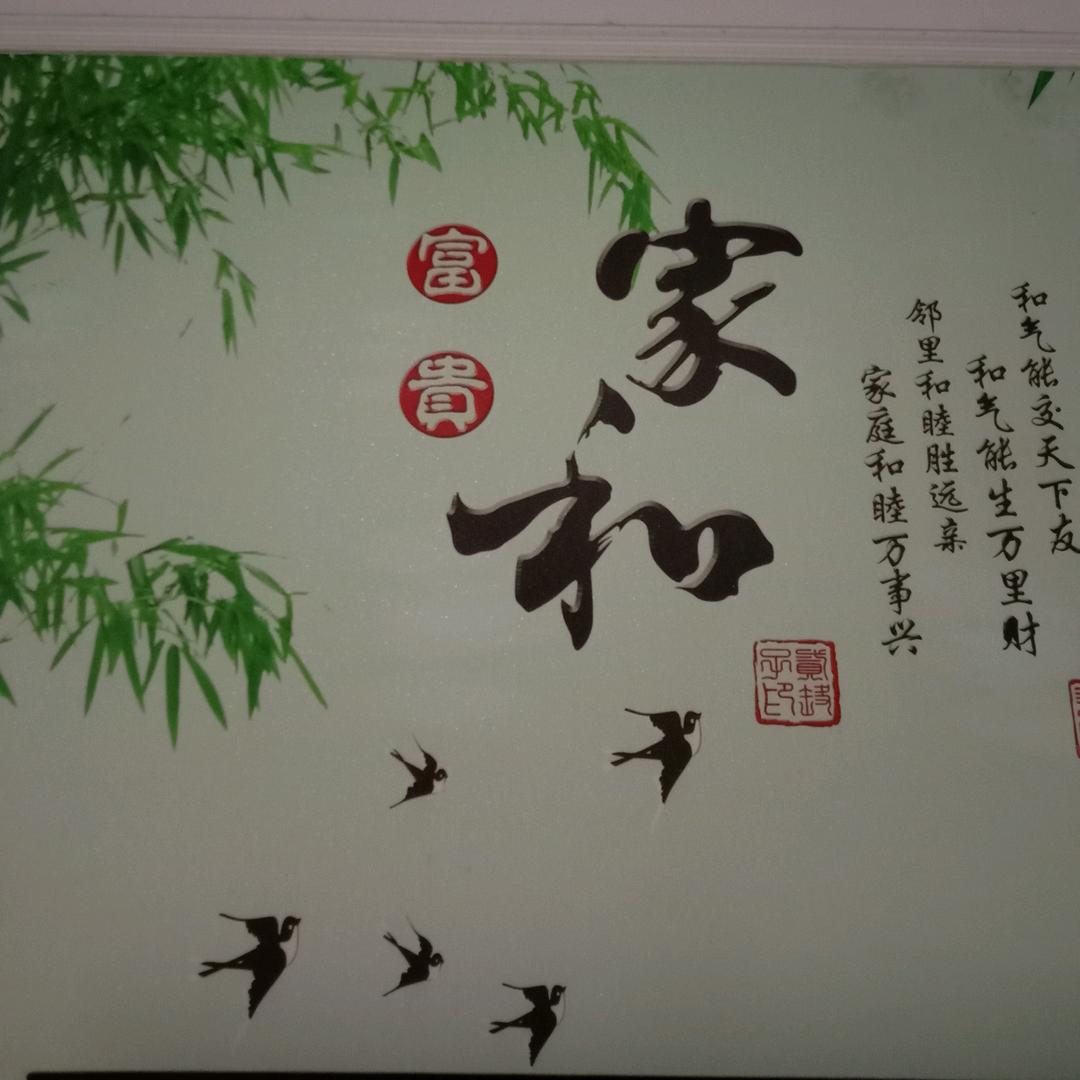 和气能交天下友
和气能生万里财
邻里和睦胜远亲
家庭和睦万事兴
家和
富貴